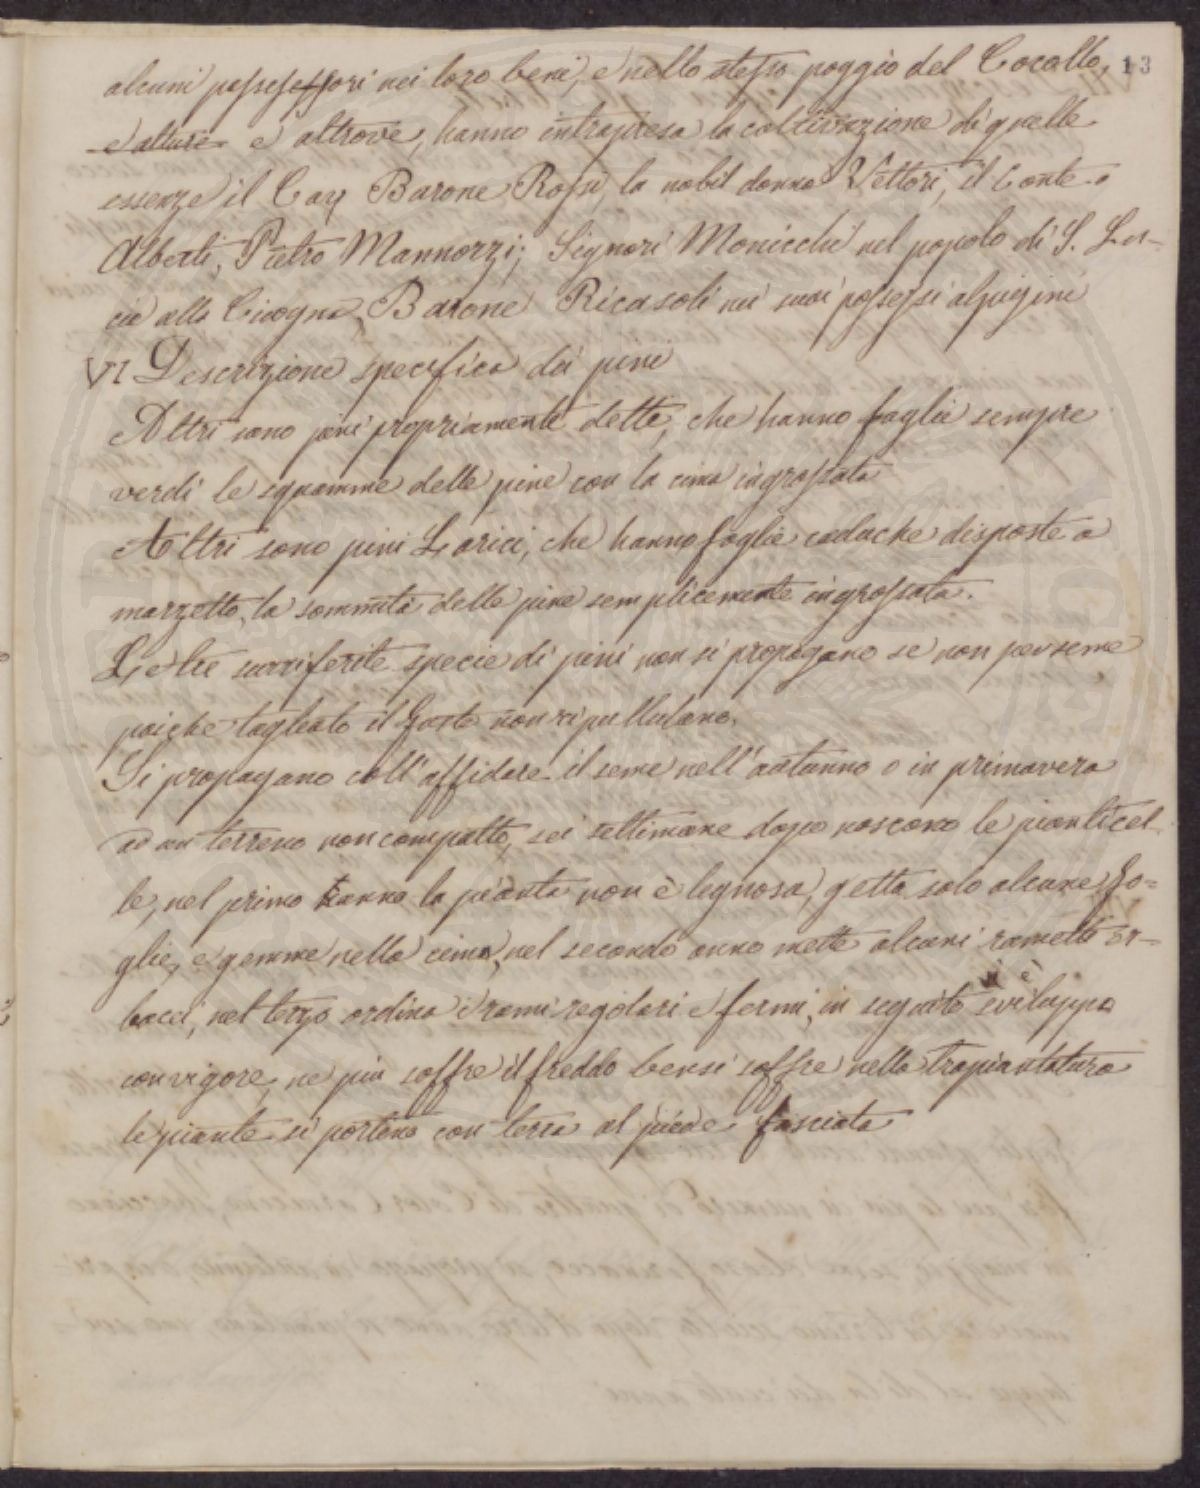 alcuni possessori nei loro beni, e nello stesso poggio del Cocollo, 13
e alture e altrove, hanno intrapresa la coltivazione di quelle
essenze il Cav Barone Rossi, la nobil donna Vettori, il Conte
Alberti, Pietro Mannozzi; Signori Monicchi nel popolo di S. Lu=
cia alla Cicogna, Barone Ricasoli nei suoi possessi alpigini
VI Descrizione specifica dei pini
Altri sono pini propriamente dette, che hanno foglie sempre
verdi le squamme delle pine con la cima ingrossata
Altri sono pini Larici, che hanno foglie caduche disposte a
mazzetto, la sommità delle pine semplicemente ingrossata.
Le tre surriferite specie di pini non si propagano se non per seme
poiche tagliato il fusto non ripullulano.
Si propagano coll'affidare il seme nell'autunno o in primavera
ad un terreno non compatto, sei settimane dopo nascono le pianticel
le, nel primo anno la pianta non è legnosa, getta solo alcune fo=
glie, e gemme nella cima, nel secondo anno mette alcuni rametti er=
bacei, nel terzo ordina i rami regolari e fermi, in seguito sviluppa
con vigore, ne piu soffre il freddo bensi soffre nella trapiantatura
le piante si portino con terra al piede fasciata